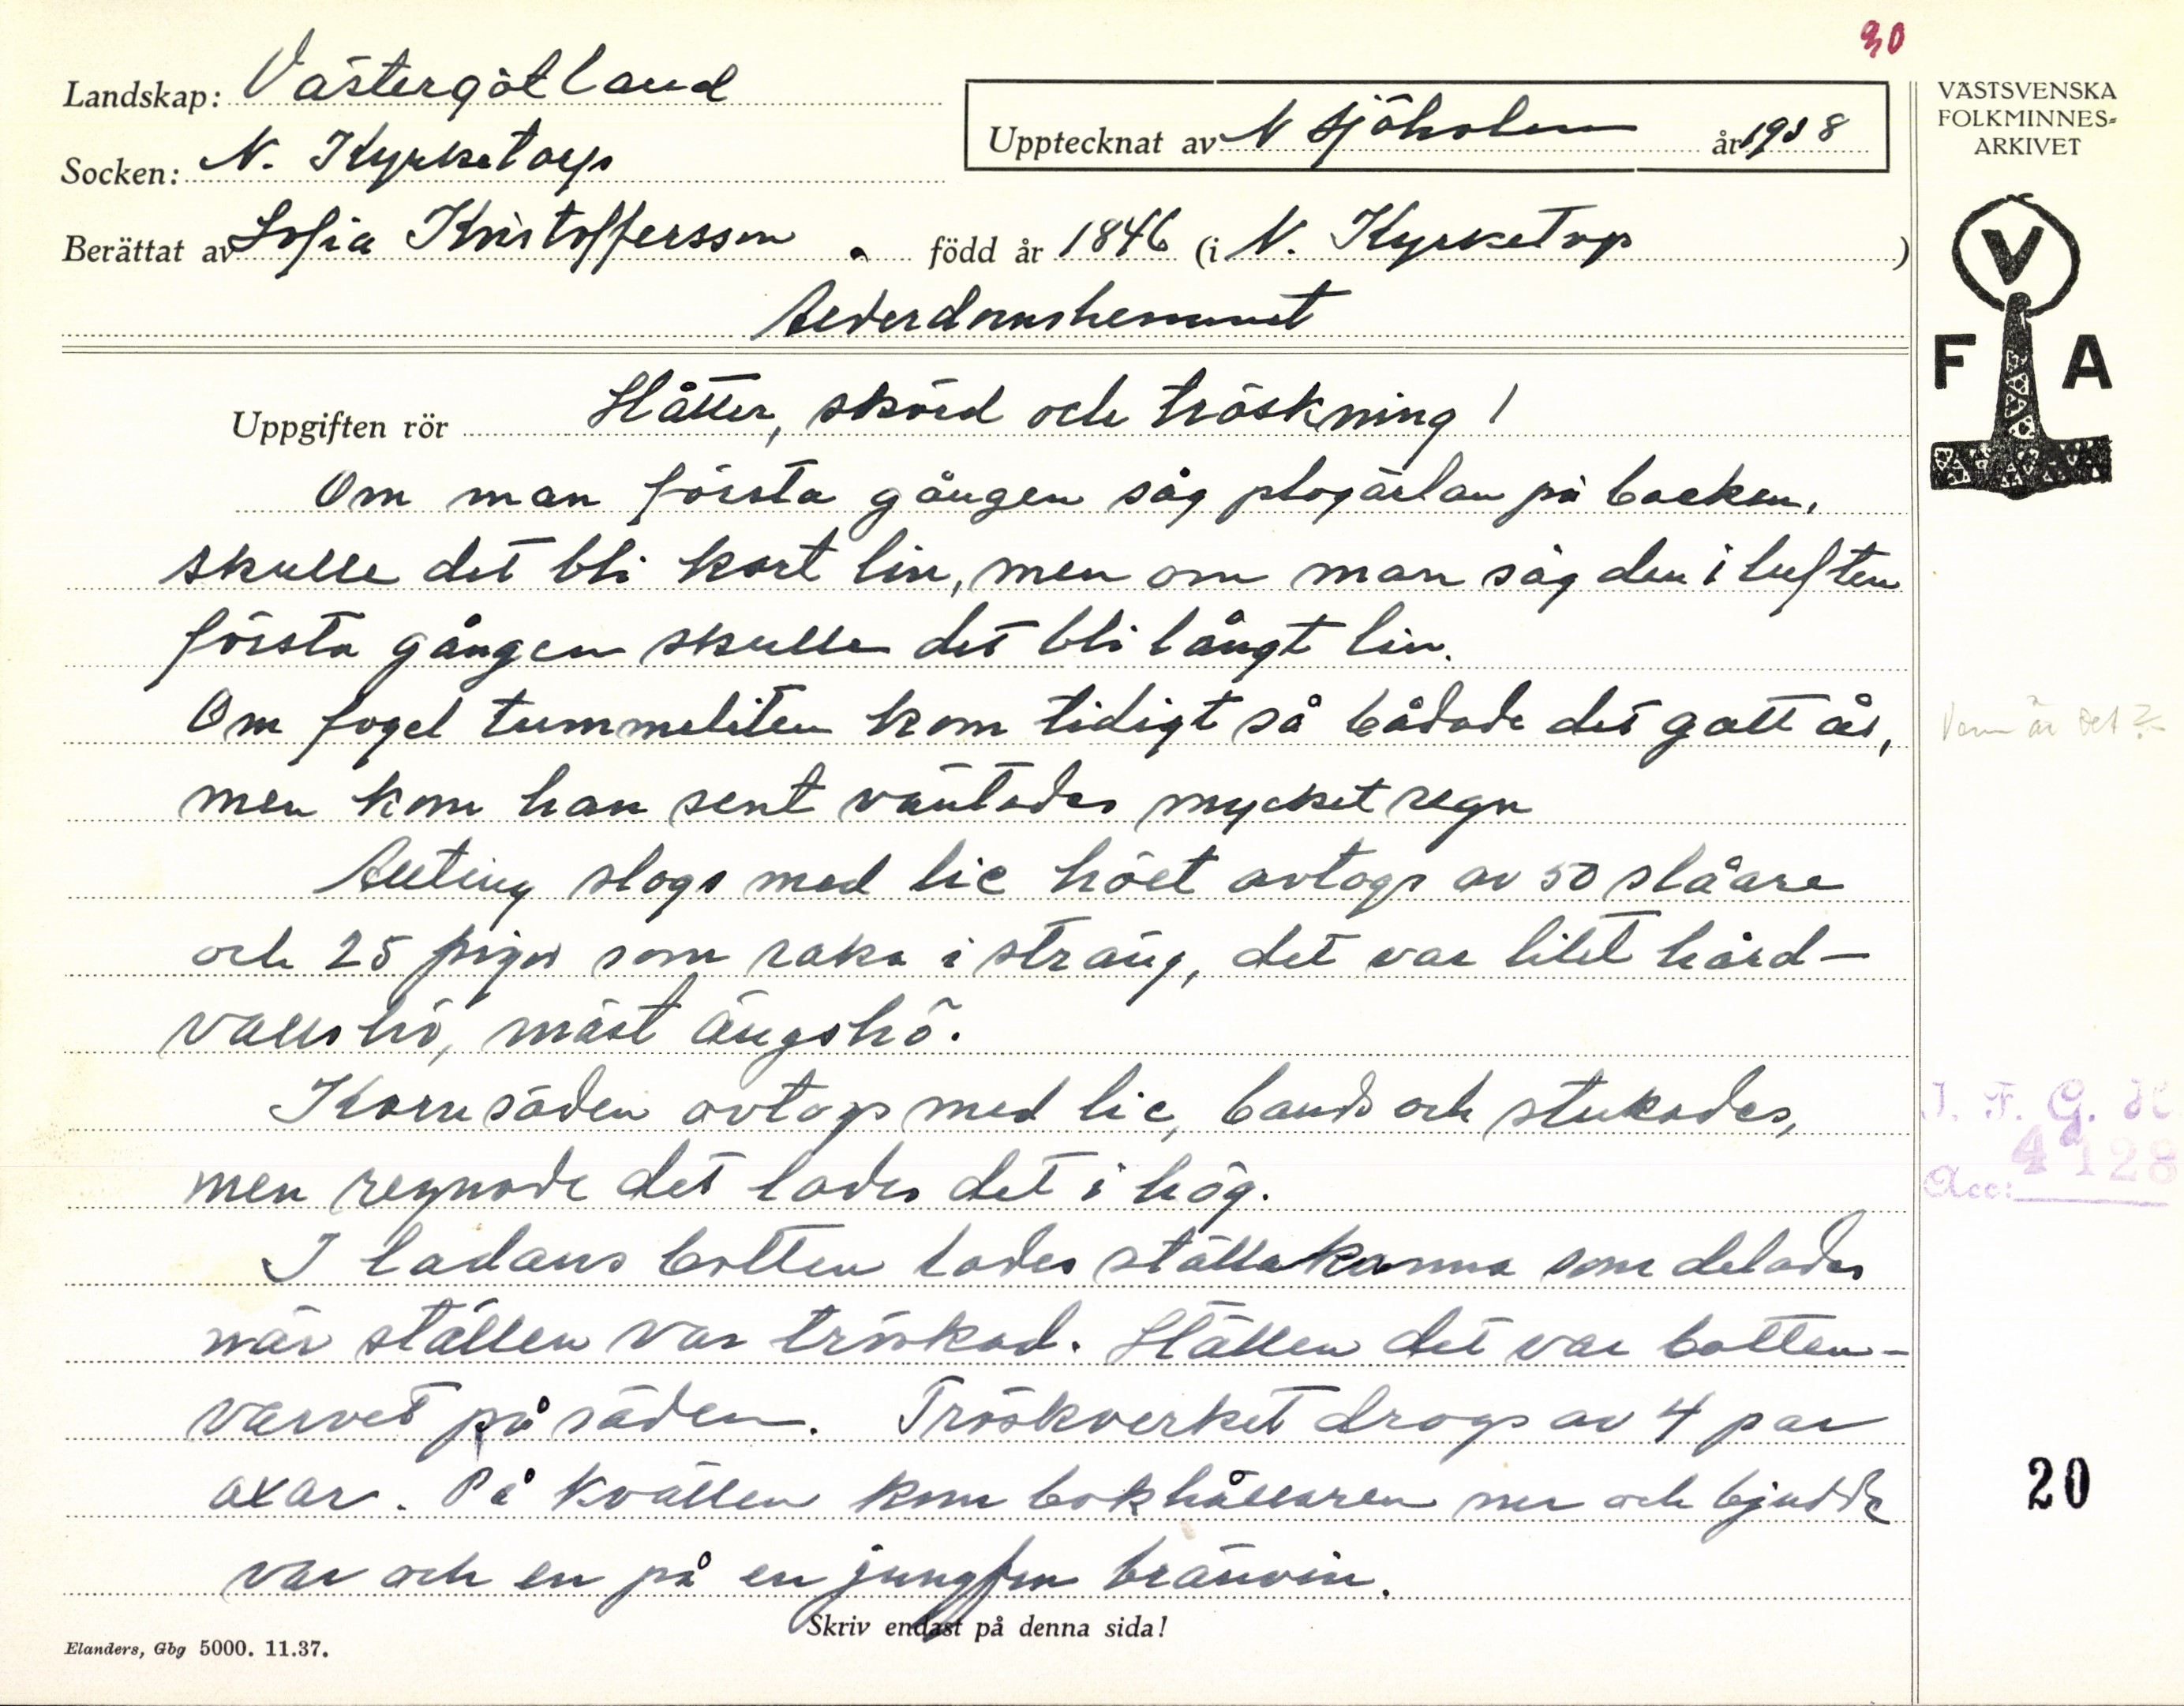 30
Landskap: Västergötland
Socken: N. Kyrketorp
Upptecknat av N Sjöholm år 1938
Berättat av Sofia Kristoffersson född år 1846 (i N. Kyrketorp)
Ålderdomshemmet
Uppgiften rör Slåtter, skörd och tröskning!
Om man första gången såg plogärlan på backen,
skulle det bli kort lin, men om man såg den i luften
första gången skulle det bli långt lin.
Om fogel tummeliten kom tidigt så bådade det gott år,
men kom han sent väntades mycket regn
Allting slogs med lie höet avtogs av 50 slåare
och 25 pigor som raka i sträng, det var litet hård-
vallshö, mäst ängshö.
Kornsäden avtogs med lie, bands och stukades,
men regnade det lades det i hög.
I ladans botten lades ställakanna som delades
när ställen var tröskad. Ställen det var botten-
varvet på säden. Tröskverket drogs av 4 par
oxar. På kvällen kom bokhållaren ner och bjudde
var och en på en jungfru bränvin.
Skriv endast på denna sida!
Elanders, Gbg 5000. 11.37.
VÄSTSVENSKA
FOLKMINNES-
ARKIVET
V
F A
Vem är det?
I. F. G. H
Acc: 4128
20